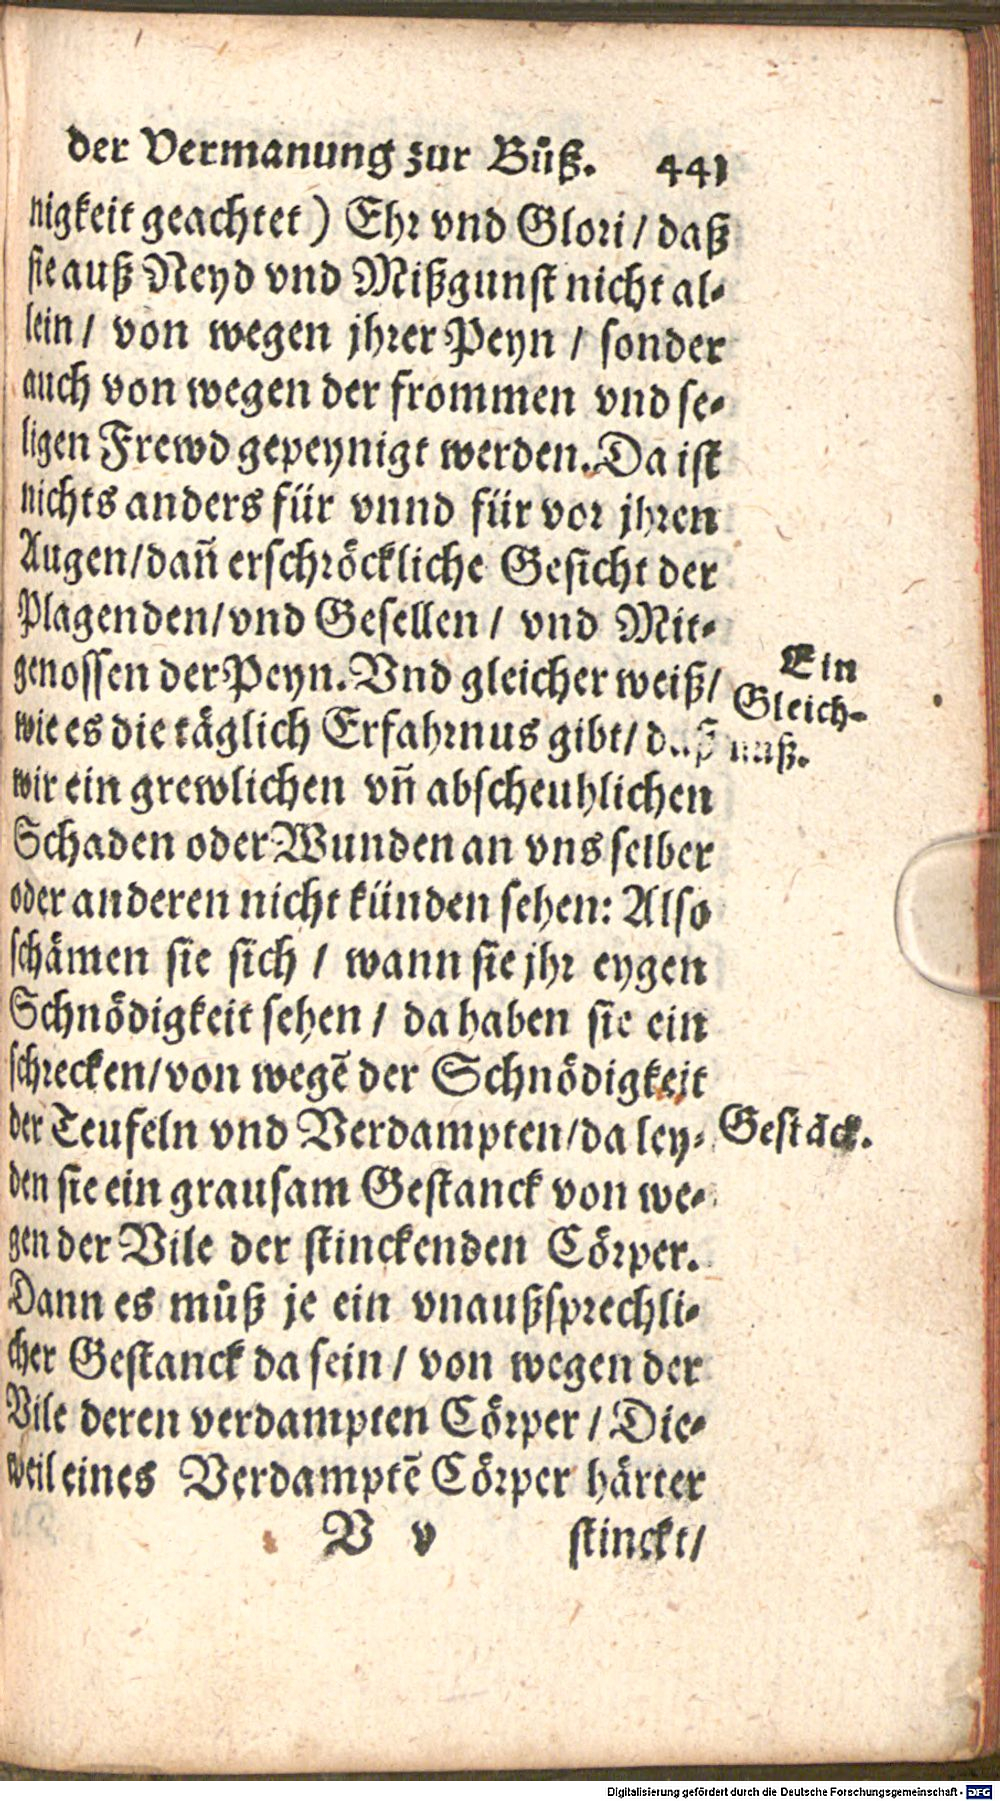 der Vermanung zur Bůß. 441
nigkeit geachtet) Ehr vnd Glori / daß
sie auß Neyd vnd Mißgunst nicht al-
lein / von wegen jhrer Peyn / sonder
auch von wegen der frommen vnd se-
ligen Frewd gepeynigt werden. Da ist
nichts anders für vnnd für vor jhren
Augen / dañ erschröckliche Gesicht der
Plagenden / vnd Gesellen / vnd Mit-
genossen der Peyn. Vnd gleicher weiß /
wie es die täglich Erfahrnus gibt / daß
wir ein grewlichen vñ abscheuhlichen
Schaden oder Wunden an vns selber
oder anderen nicht künden sehen: Also
schämen sie sich / wann sie jhr eygen
Schnödigkeit sehen / da haben sie ein
schrecken / von wegẽ der Schnödigkeit
der Teufeln vnd Verdampten / da ley-
den sie ein grausam Gestanck von we-
gen der Vile der stinckenden Cörper.
Dann es můß je ein vnaußsprechli-
cher Gestanck da sein / von wegen der
Vile deren verdampten Cörper / Die-
weil eines Verdamptẽ Cörper härter
V v stinckt /
Ein
Gleich-
nuß.
Gestãck.
Digitalisierung gefördert durch die Deutsche Forschungsgemeinschaft - DFG